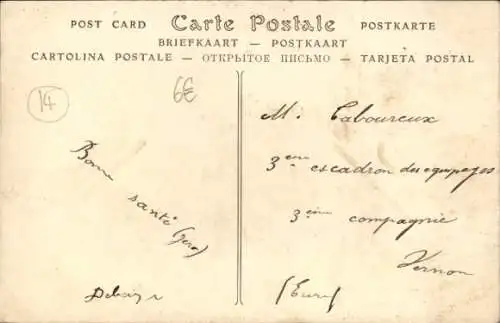 POST CARD Carte Postale POSTKARTE
BRIEFKAART — POSTKAART
CARTOLINA POSTALE — ОТКРЫТОЕ ПИСЬМО — TARJETA POSTAL
14
6€
Bonne
santé
M. Taboureux
3eme escadron des equipages
3eme compagnie
Vernon
(Eure)